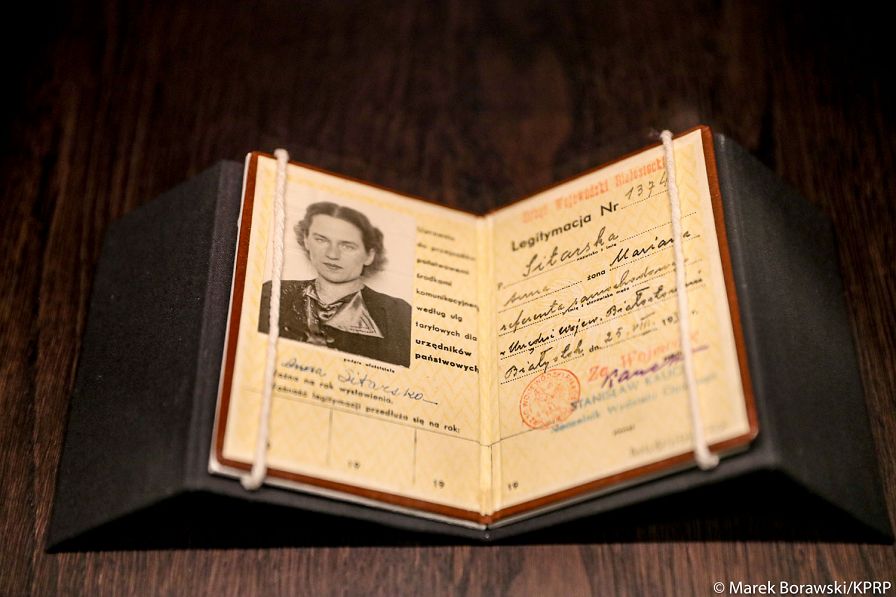 do przejazdów
państwowemi
środkami
komunikacyjnemi
według ulg
taryfowych dla
urzędników
państwowych
podpis właściciela
Anna Sitarska
Ważna na rok wystawienia.
Ważność legitymacji przedłuża się na rok:
19
19
Urząd Wojewódzki Białostocki
Legitymacja Nr 1374
P. Sitarska
nazwisko i imię
Anna żona Mariana
referenta samochodowego
w Urzędzie Wojew. Białostockim
Białystok, dn. 25.VIII. 193
Za Wojewodę
STANISŁAW
Naczelnik Wydziału
19
© Marek Borawski/KPRP